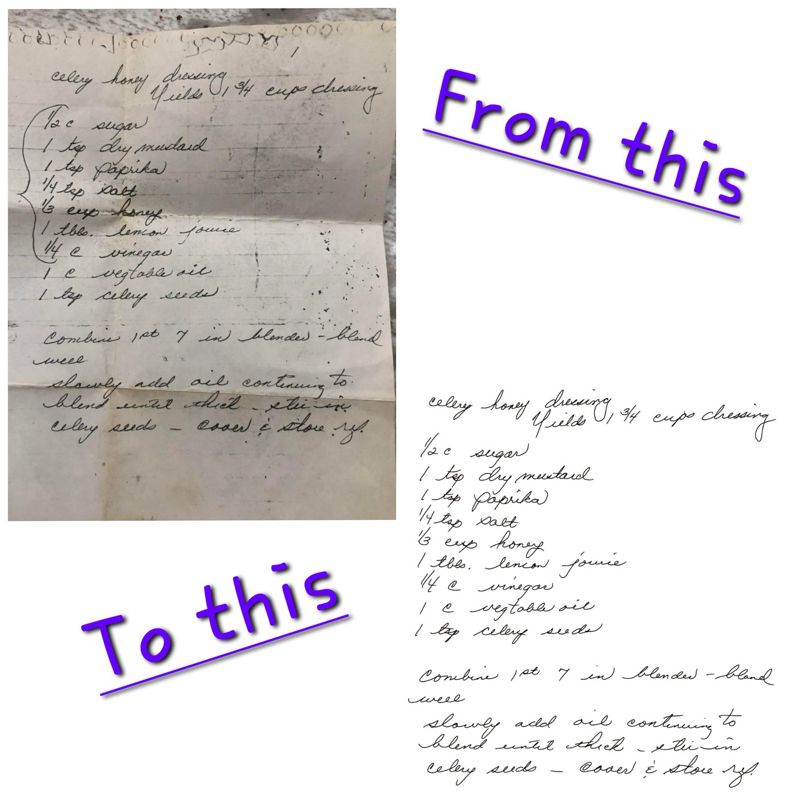 celery honey dressing
Yields 1 3/4 cups dressing
1/2 c sugar
1 tsp dry mustard
1 tsp paprika
1/4 tsp salt
1/3 cup honey
1 tbls. lemon jouice
1/4 c vinegar
1 c vegtable oil
1 tsp celery seeds
Combine 1st 7 in blender - blend
well
slowly add oil continuing to
blend until thick - stir in
celery seeds - cover & store ref.
From this
To this
celery honey dressing
Yields 1 3/4 cups dressing
1/2 c sugar
1 tsp dry mustard
1 tsp paprika
1/4 tsp salt
1/3 cup honey
1 tbls. lemon jouice
1/4 c vinegar
1 c vegtable oil
1 tsp celery seeds
Combine 1st 7 in blender - blend
well
slowly add oil continuing to
blend until thick - stir in
celery seeds - cover & store ref.